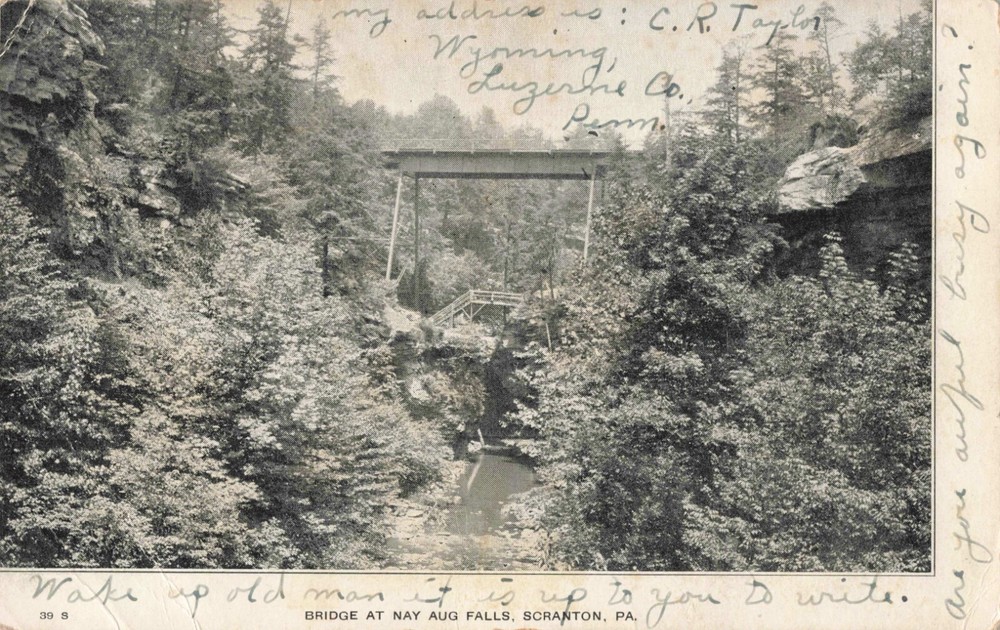 my address is: C. R. Taylor
Wyoming,
Luzerne Co.,
Penn.
are you awful busy again?
Wake up old man it is up to you to write.
39 S
BRIDGE AT NAY AUG FALLS, SCRANTON, PA.